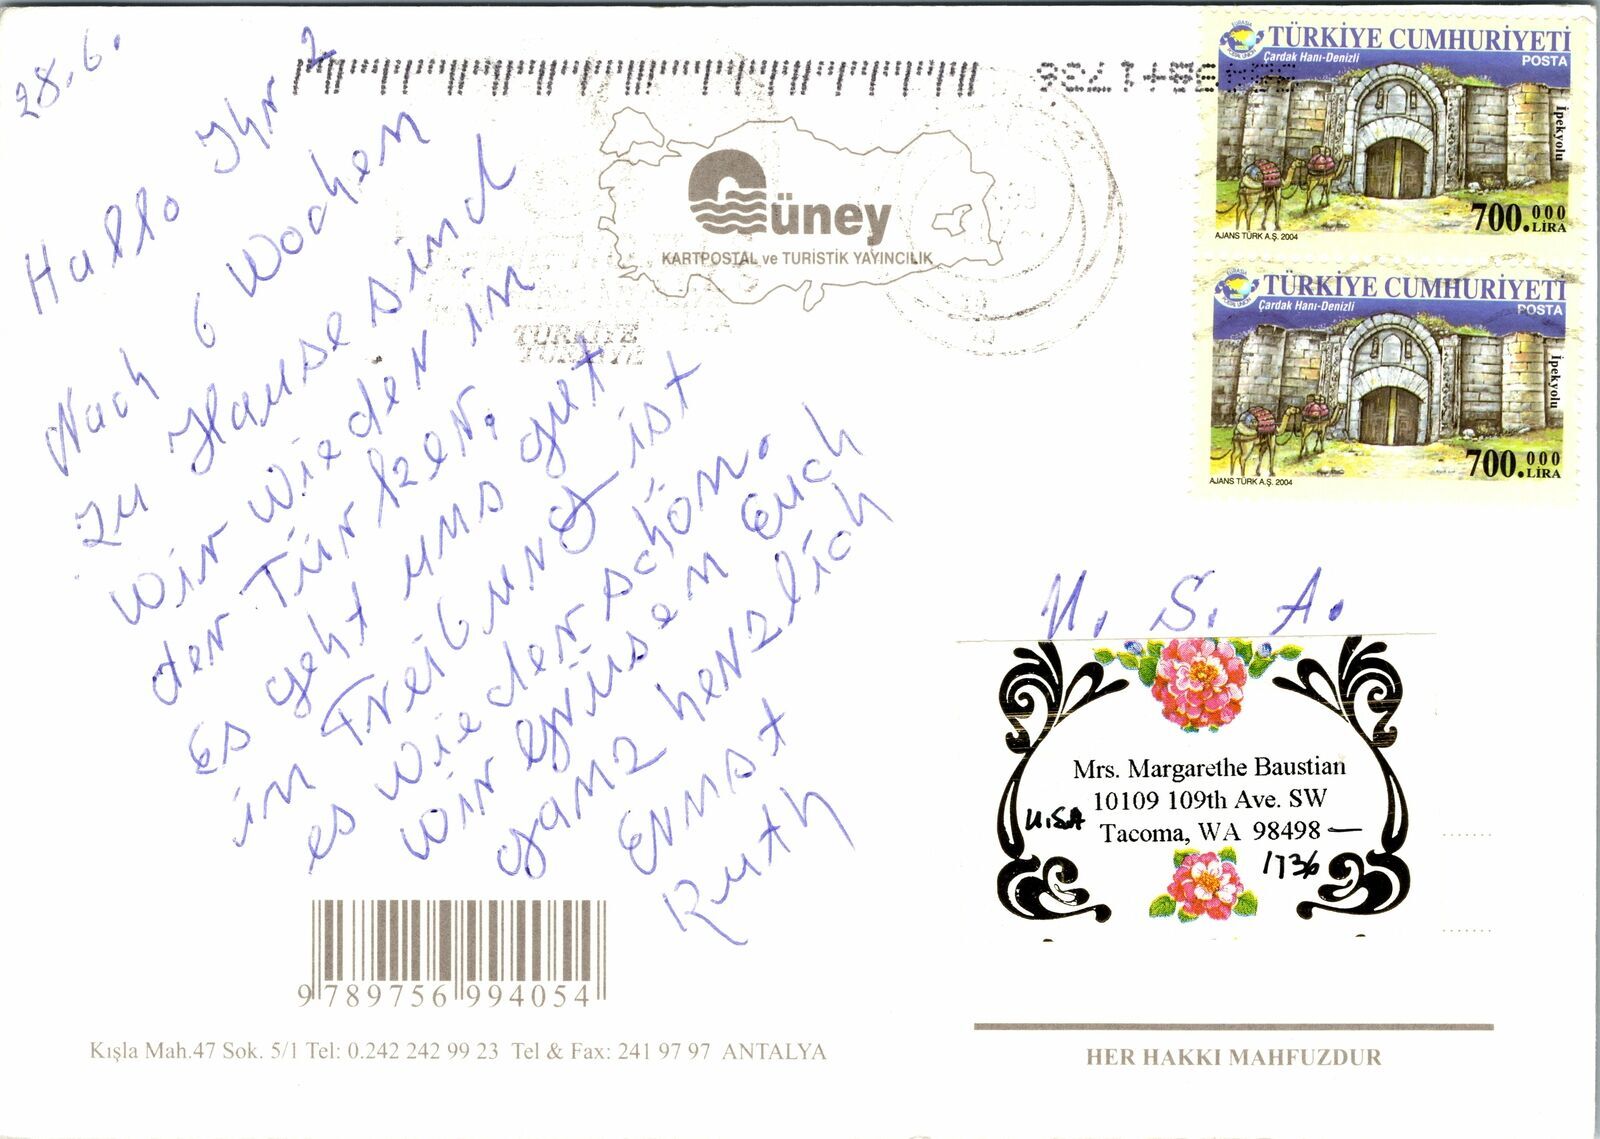 28.6.
Hallo Ihr 2
Nach 6 Wochen
zu Hause sind
wir wieder in
der Türkei.
Es geht uns gut
in Freiburg ist
es wieder schön.
Wir Grüsen Euch
ganz herzlich
Ernst
Ruth
Güney
KARTPOSTAL ve TURİSTİK YAYINCILIK
TÜRKİYE
TÜRKİYE CUMHURİYETİ
Çardak Hanı-Denizli
POSTA
İpekyolu
700.000
LİRA
AJANS TÜRK A.Ş. 2004
TÜRKİYE CUMHURİYETİ
Çardak Hanı-Denizli
POSTA
İpekyolu
700.000
LİRA
AJANS TÜRK A.Ş. 2004
U. S. A.
Mrs. Margarethe Baustian
10109 109th Ave. SW
U.S.A Tacoma, WA 98498 —
1736
9 789756 994054
Kışla Mah.47 Sok. 5/1 Tel: 0.242 242 99 23 Tel & Fax: 241 97 97 ANTALYA
HER HAKKI MAHFUZDUR